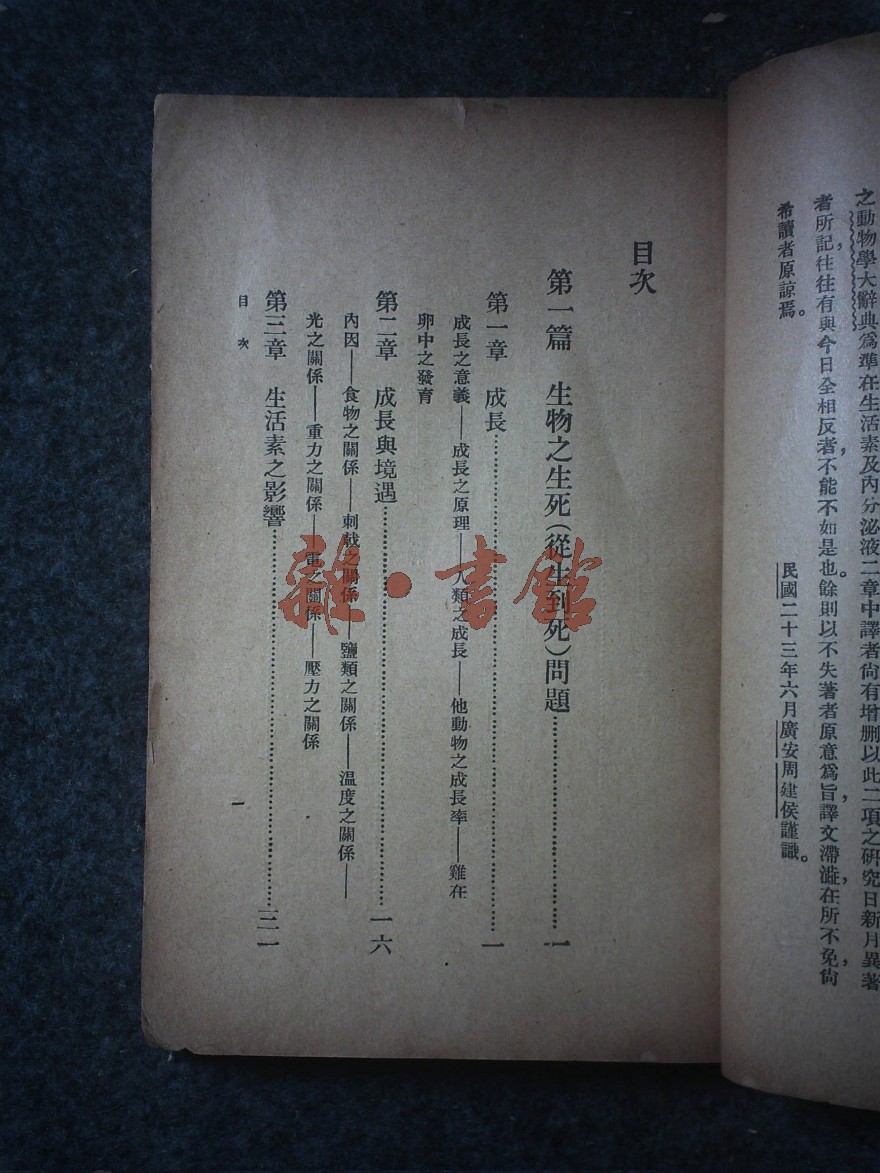 之動物學大辭典爲準在生活素及內分泌液二章中譯者尙有增删以此二項之硏究日新月異著
者所記往往有與今日全相反者,不能不如是也。餘則以不失著者原意爲旨,譯文滯澁,在所不免,尙
希讀者原諒焉。
民國二十三年六月廣安周建侯謹識。
目次
第一篇 生物之生死(從生到死)問題……一
第一章 成長……一
成長之意義——成長之原理——人類之成長——他動物之成長率——雞在
卵中之發育
第二章 成長與境遇……一六
內因——食物之關係——刺戟之關係——鹽類之關係——温度之關係——
光之關係——重力之關係——電之關係——壓力之關係
第三章 生活素之影響……三一
目次
一
雜·書館